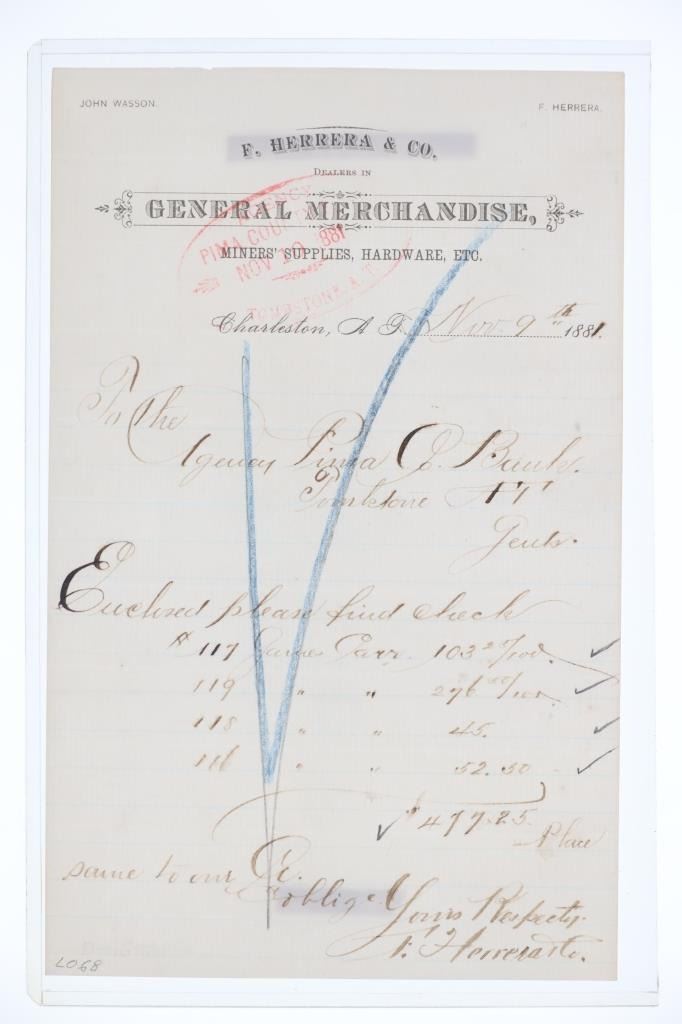 JOHN WASSON. F. HERRERA.
F. HERRERA & CO.
DEALERS IN
GENERAL MERCHANDISE,
MINERS' SUPPLIES, HARDWARE, ETC.
AGENCY
PIMA COUNTY
NOV 10 881
TOMBSTONE, A.T.
Charleston, A T. Nov. 9th 1881.
To the
Agency Pima Co. Bank.
Tombstone AT
Gents.
Enclosed please find check
# 117 James Carr. 103 25/100.
119 " " 276 50/100.
118 " " 45.
116 " " 52.50
$ 477.25
Place
same to our Cr.
& oblige Yours Respecty.
F. Herrera & Co.
LO68